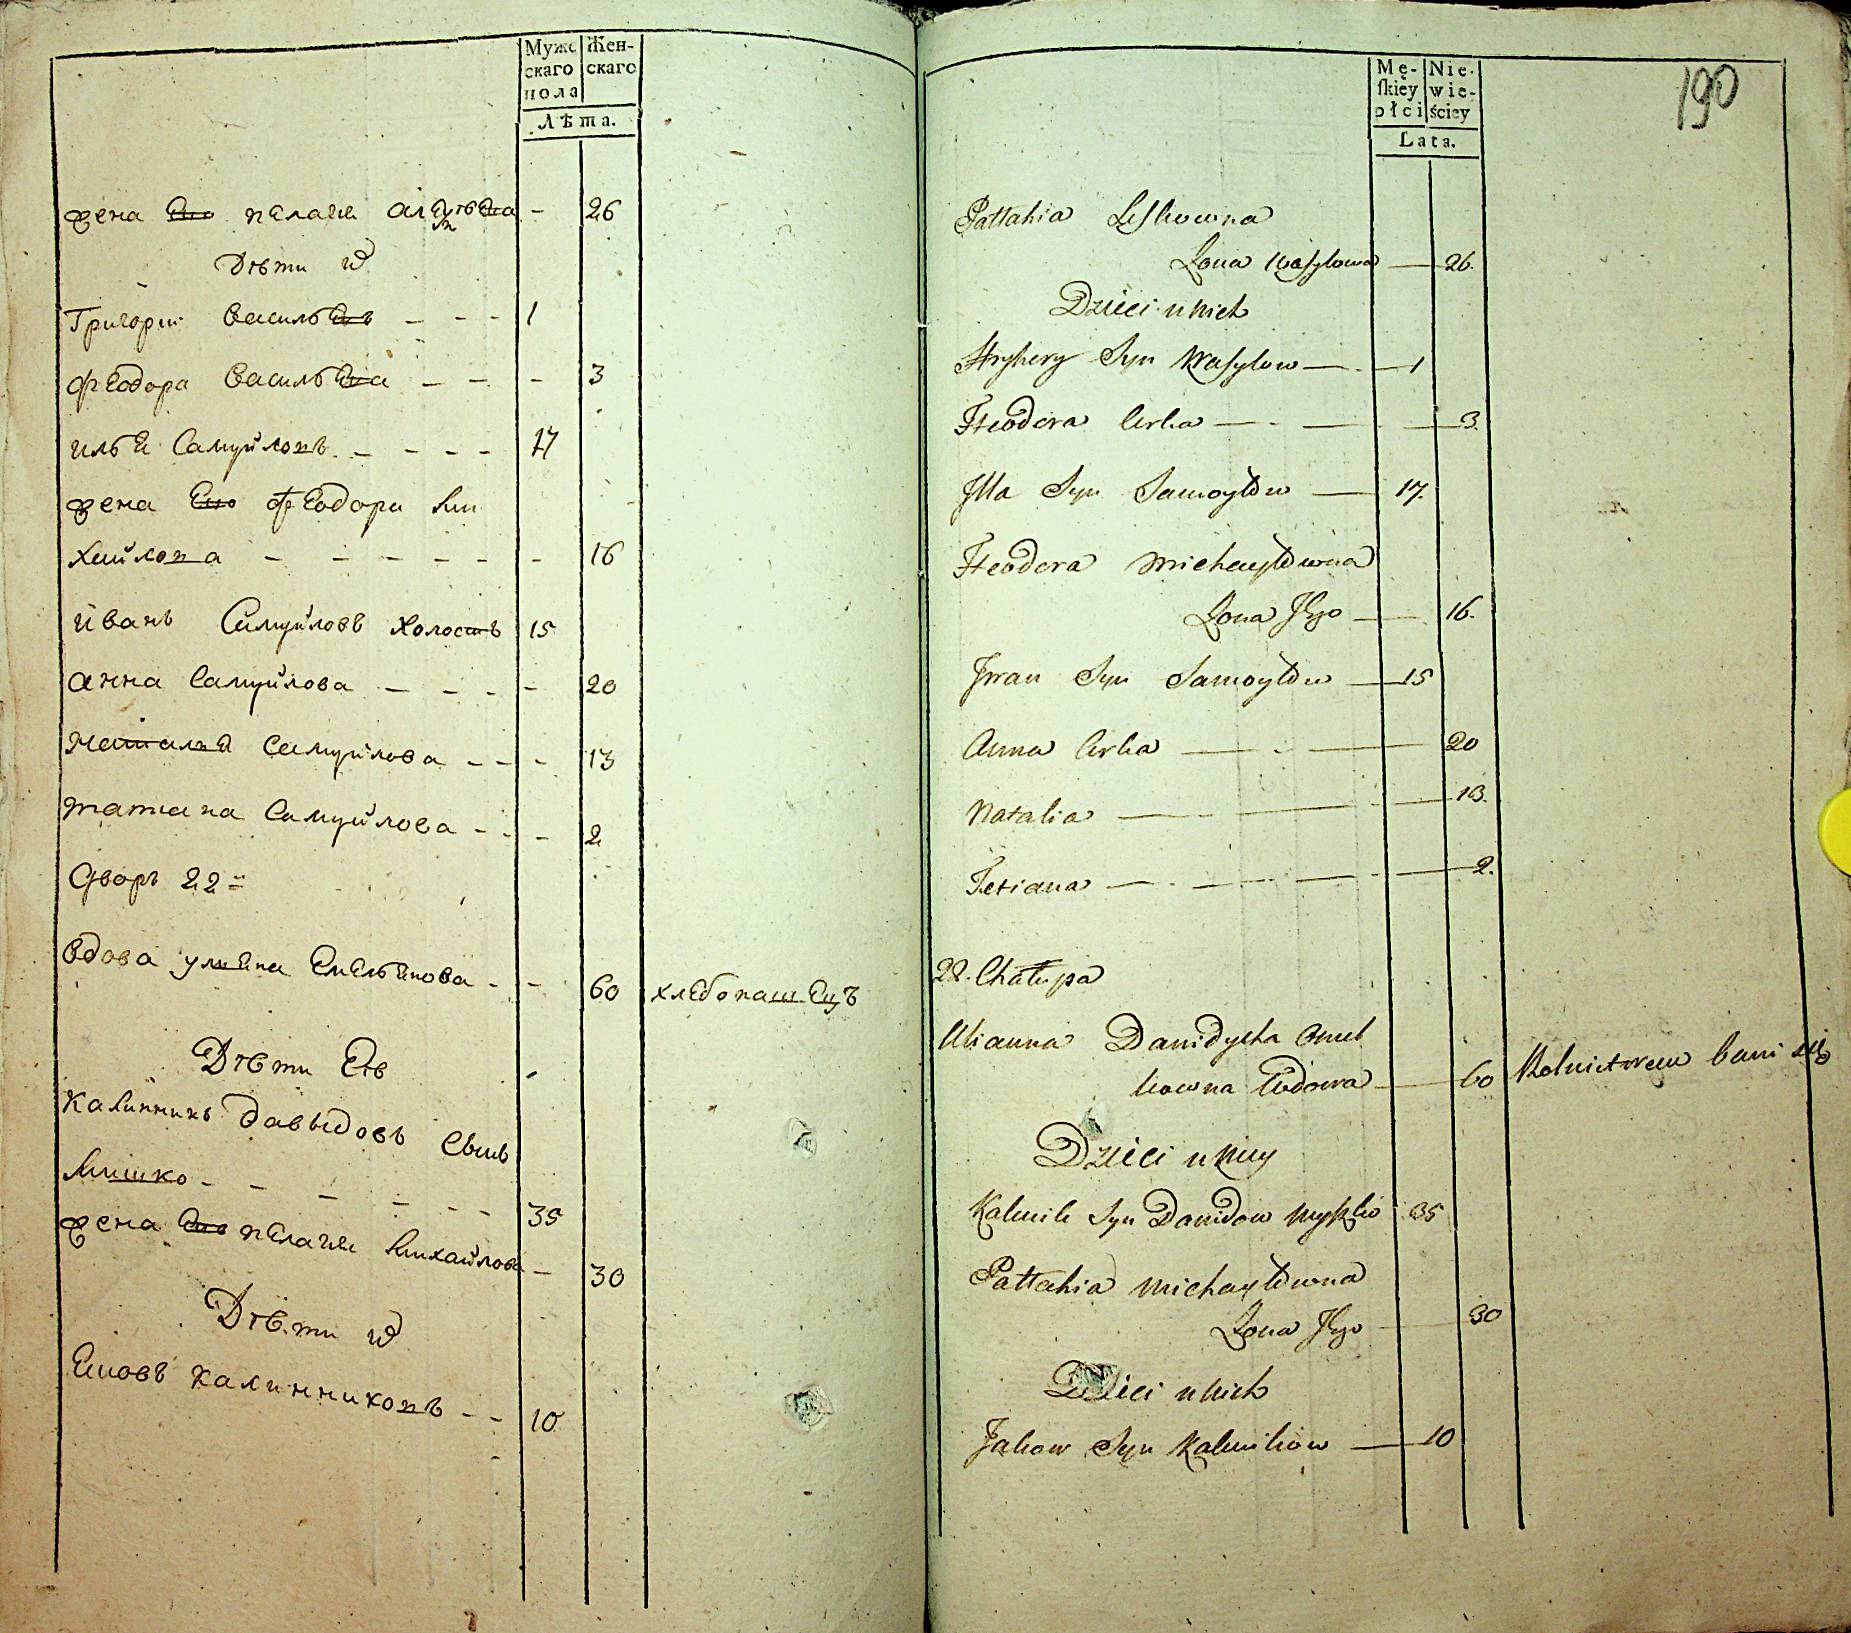 Мужс
скаго
пола
Жен-
скаго
Лѣта.
жена Его пелагея 26
Дѣти их
Григорий Васильевъ 1
Феодора Васильева 3
илья Самуйловъ 17
жена Его Феодора Ми
хайлова 16
иванъ Самуйловъ холостъ 15
анна Самуйлова 20
наталия самуйлова 13
татиана Самуйлова 2
Дворъ 22
вдова улиана Емельянова 60 хлебопашецъ
Дѣти Еѣ
Калинникъ давыдовъ Сынъ
Мишко 35
жена Его пелагея Михайлова 30
Дѣти их
Еяковъ калинниковъ 10
Mę-
ſkiey
płci
Nie-
wie-
ściey
Lata.
190
Pallahia Leſkowna
Żona Waſylowa 26.
Dzieci u nich
Hryhory Syn Waſylow 1
Fteodora Curka 3.
Jlla Syn Samoyłow 17.
Fteodora Michayłowna
Żona Jego 16.
Jwan Syn Samoyłow 15
Anna Curka 20
Natalia 13.
Tetiana 2.
22. Chałupa
Ulianna Dawidycha Omel
kowna Wdowa 60 Rolnictwem bawi się
Dzieci u niey
Kalenik Syn Dawidow Myszko 35
Pallahia Michayłowna
Żona Jego 30
Dzieci u nich
Jakow Syn Kalenikow 10